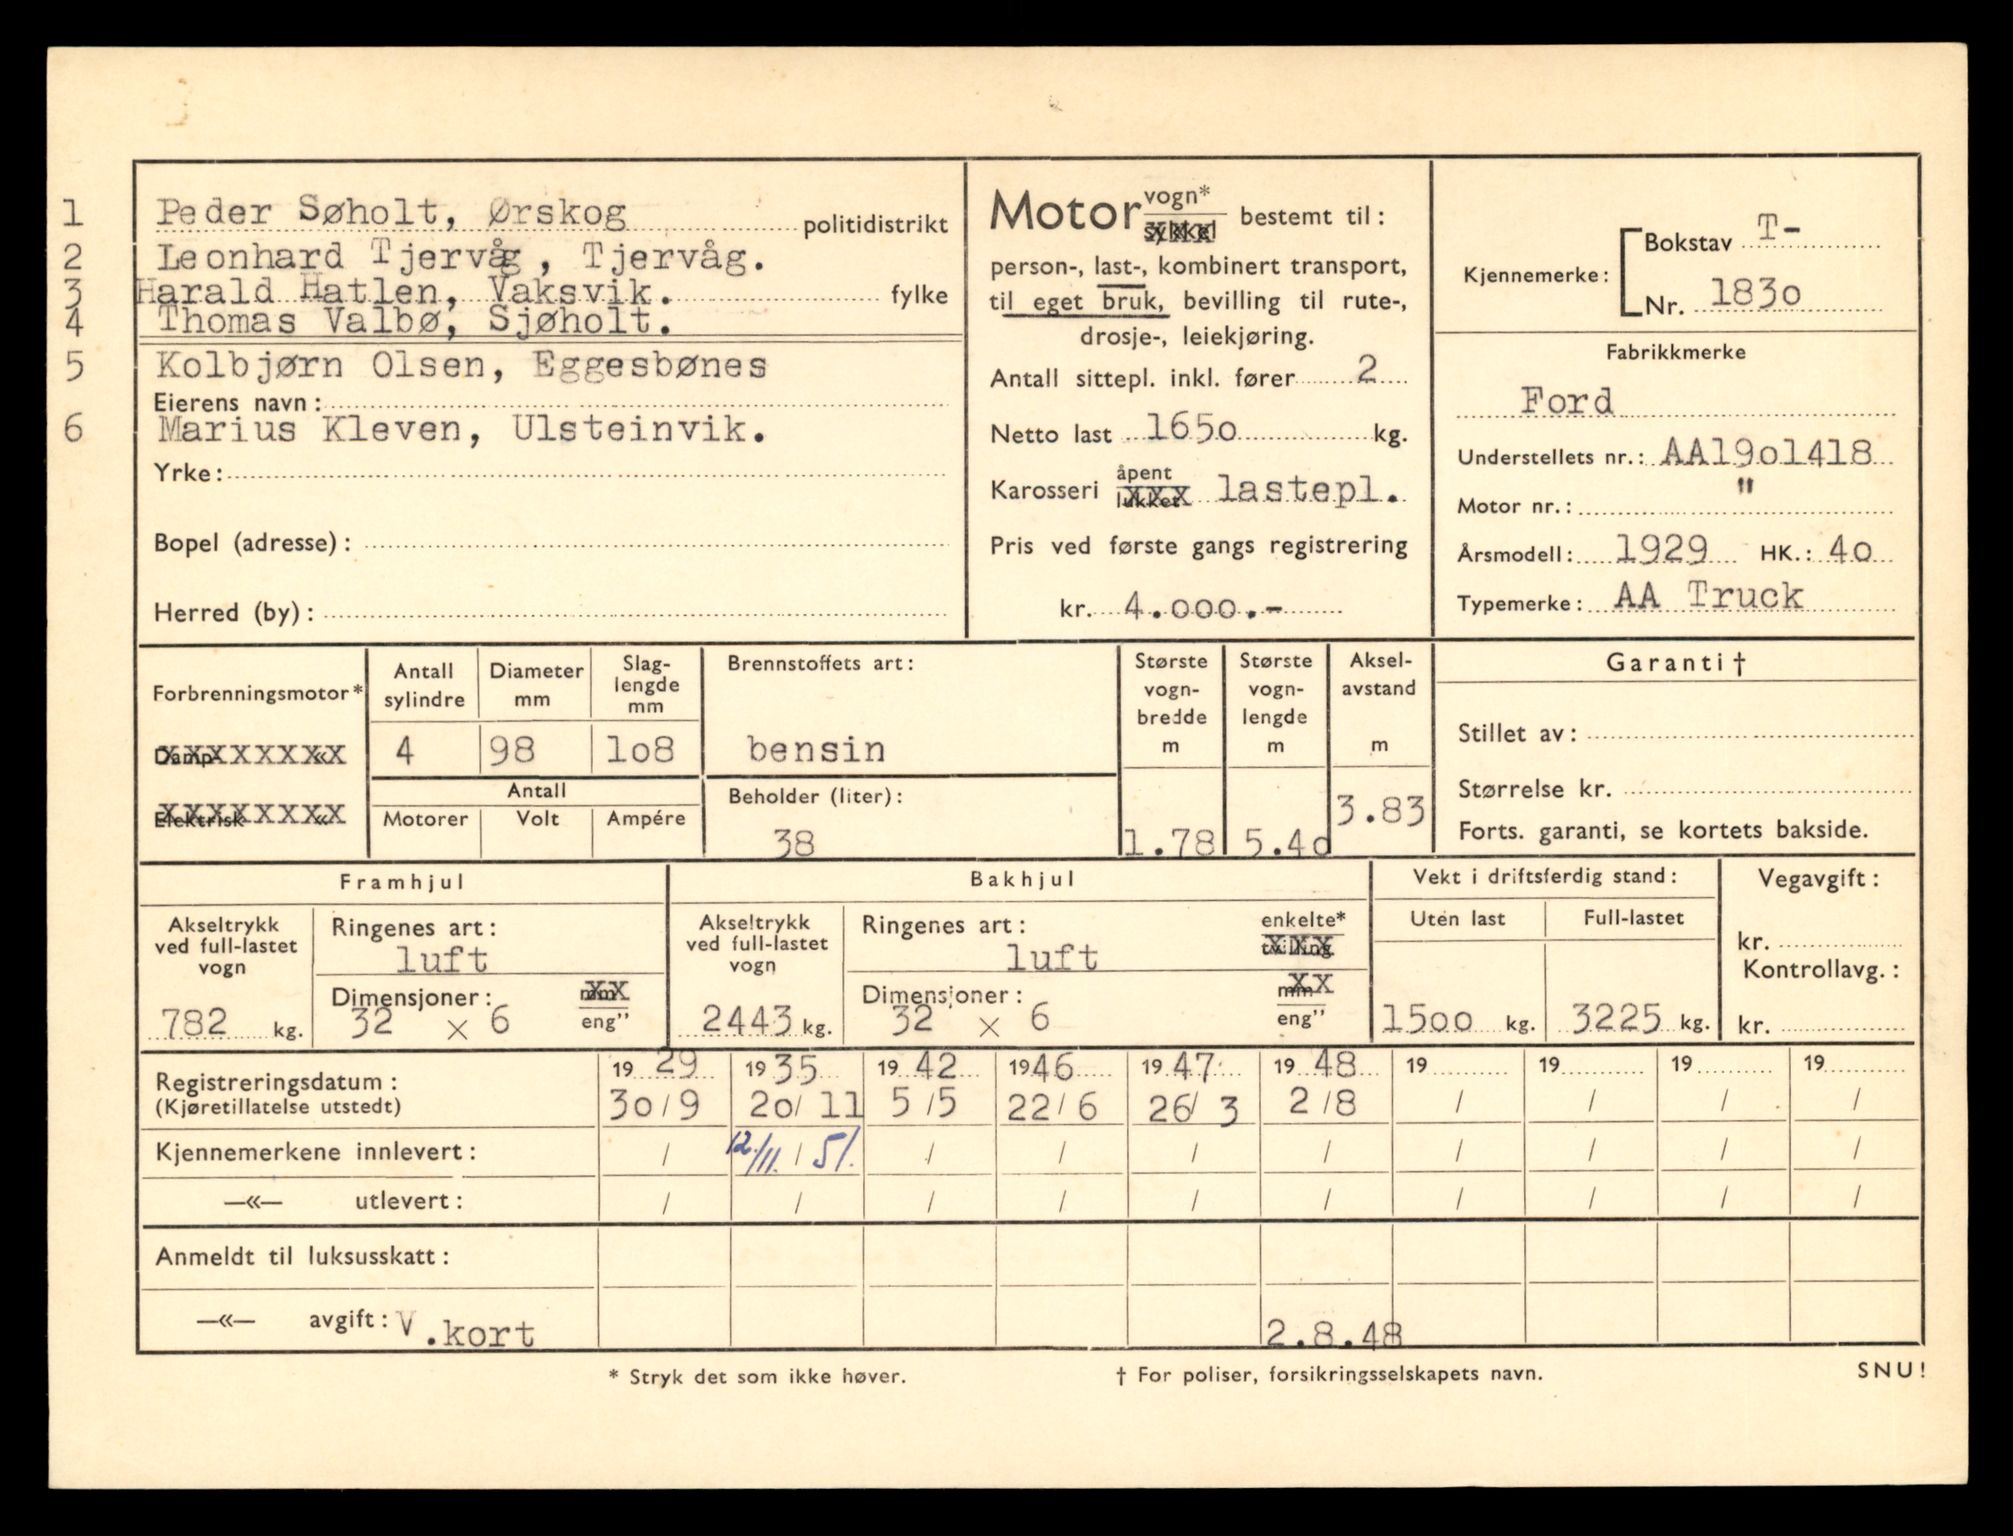 1 Peder Søholt, Ørskog politidistrikt
2 Leonhard Tjervåg, Tjervåg.
3 Harald Hatlen, Vaksvik. fylke
4 Thomas Valbø, Sjøholt.
5 Kolbjørn Olsen, Eggesbønes
Eierens navn:
6 Marius Kleven, Ulsteinvik.
Yrke:
Bopel (adresse):
Herred (by):
Motor vogn* sykkel bestemt til:
person-, last-, kombinert transport,
til eget bruk, bevilling til rute-,
drosje-, leiekjøring.
Antall sittepl. inkl. fører 2
Netto last 1650 kg.
Karosseri åpent lukket lastepl.
Pris ved første gangs registrering
kr. 4.000.-
Kjennemerke: Bokstav T-
Nr. 1830
Fabrikkmerke
Ford
Understellets nr.: AA19o1418
Motor nr.: "
Årsmodell: 1929 HK.: 4o
Typemerke: AA Truck
Forbrenningsmotor*
Damp XXXXXXXX «
Elektrisk XXXXXXXX «
Antall sylindre
4
Diameter mm
98
Slag-
lengde
mm
1o8
Antall
Motorer Volt Ampére
Brennstoffets art:
bensin
Beholder (liter):
38
Største
vogn-
bredde
m
1.78
Største
vogn-
lengde
m
5.4o
Aksel-
avstand
m
3.83
Garanti †
Stillet av:
Størrelse kr.
Forts. garanti, se kortets bakside.
Framhjul
Akseltrykk
ved full-lastet
vogn
782 kg.
Ringenes art:
luft
Dimensjoner: mm
32 x 6 eng"
Bakhjul
Akseltrykk
ved full-lastet
vogn
2443 kg.
Ringenes art: enkelte*
luft tvilling
Dimensjoner: mm
32 x 6 eng"
Vekt i driftsferdig stand:
Uten last Full-lastet
15oo kg. 3225 kg.
Vegavgift:
kr.
Kontrollavg.:
kr.
Registreringsdatum: 19 29 19 35 19 42 19 46 19 47 19 48 19 19 19 19
(Kjøretillatelse utstedt) 3o/9 2o/11 5/5 22/6 26/3 2/8 / / / /
Kjennemerkene innlevert: / 12./11. / 51. / / / / / / / /
—«— utlevert: / / / / / / / / / /
Anmeldt til luksusskatt:
—«— avgift: V.kort 2.8.48
* Stryk det som ikke høver. † For poliser, forsikringsselskapets navn. SNU!